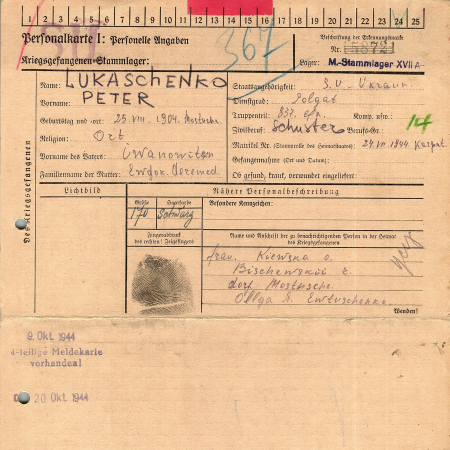 1 2 3 4 5 6 7 8 9 10 11 12 13 14 15 16 17 18 19 20 21 22 23 24 25
Personalkarte I: Personelle Angaben
Kriegsgefangenen-Stammlager:
367
Beschriftung der Erkennungsmarke
Nr.
Lager: M.-Stammlager XVII A
Des Kriegsgefangenen
Name: LUKASCHENKO
Vorname: PETER
Geburtstag und -ort: 23. VII. 1904. Mostusche.
Religion: Ort.
Vorname des Vaters: Iwanowitsch
Familienname der Mutter:
Staatsangehörigkeit: S.U. - Ukrain.
Dienstgrad: Solgat
Truppenteil: 837. Komp. usw.:
Zivilberuf: Schuster Berufs-Gr.: 14
Matrikel Nr. (Stammrolle des Heimatstaates):
Gefangennahme (Ort und Datum): 24. VII. 1944. Karpat.
Ob gesund, krank, verwundet eingeliefert:
Lichtbild
Nähere Personalbeschreibung
Größe Haarfarbe Besondere Kennzeichen:
170 Schwarz
Fingerabdruck
des rechten! Zeigefingers!
Name und Anschrift der zu benachrichtigenden Person in der Heimat
des Kriegsgefangenen
frau. Kiewska o.
Bischewskii r.
dorf Mostusche.
Ollga S. Ewtuschenko.
Wenden!
9. Okt. 1944
4-teilige Meldekarte
vorhanden!
20. Okt. 1944